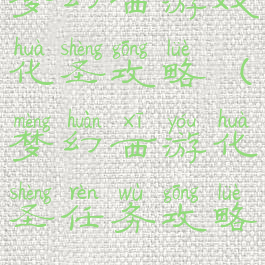 梦幻西游双
huà shèng gōng lüè
化圣攻略（
mèng huàn xī yóu huà
梦幻西游化
shèng rèn wù gōng lüè
圣任务攻略